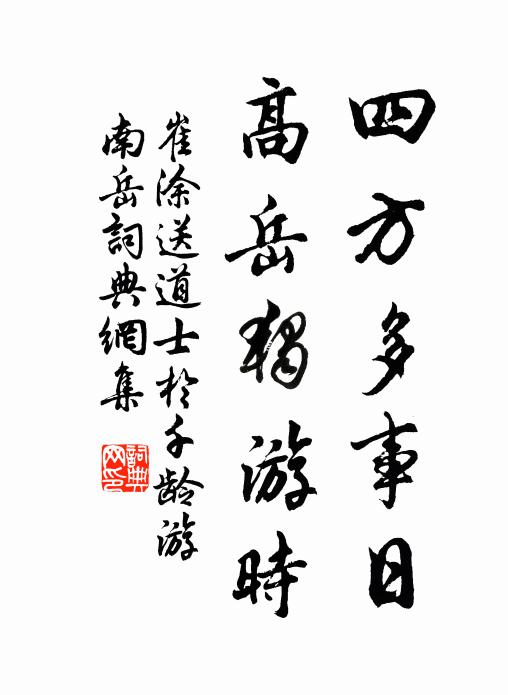 四方多事日
高岳獨游時
崔涂送道士於千龄游
南岳詞典網集
詞典网印